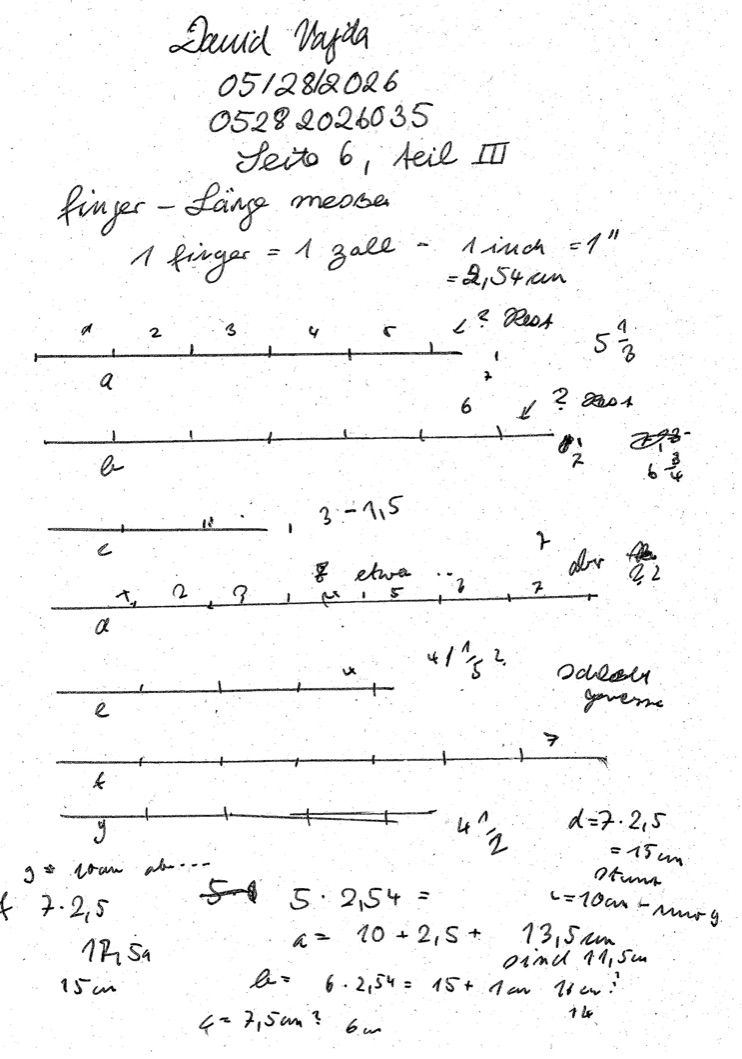 David Vajda
05/28/2026
05282026035
Seite 6, Teil III
finger - Länge messen
1 finger = 1 zoll - 1 inch = 1"
= 2,54 cm
1 2 3 4 5 ? Rest 5 1/3
a 7
6 ? Rest
b 7 6 3/4
c 3 - 1,5
7
8 etwa .. aber
1 2 3 4 5 6 7
d
4 4 / 1/5 ?
e
7
f
g 4 1/2 d = 7 · 2,5
= 15 cm
stimmt
g = 10 cm ab...
f 7 · 2,5 5 · 2,54 = c = 10 cm
17,5 a = 10 + 2,5 + 13,5 cm
sind 11,5 cm
15 cm b = 6 · 2,54 = 15 + 1 cm ?
14
c = 7,5 cm ? 6 cm